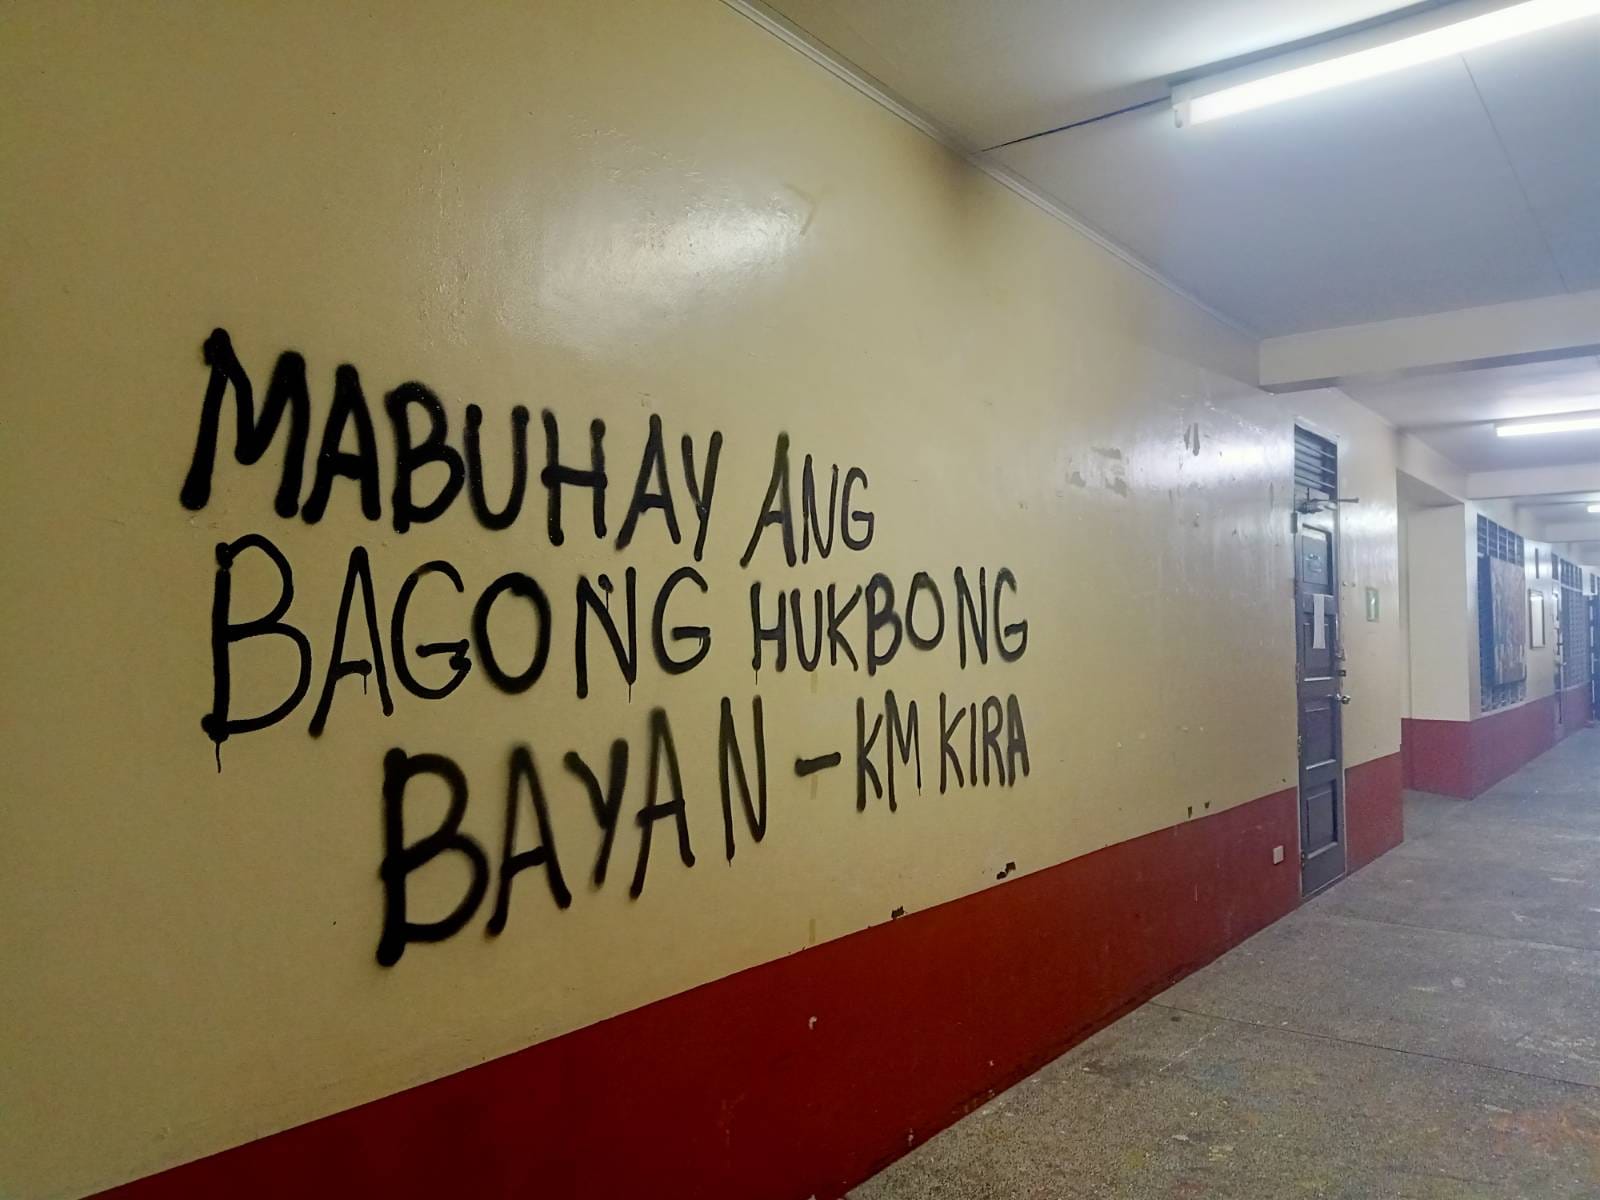 MABUHAY ANG
BAGONG HUKBONG
BAYAN - KM KIRA